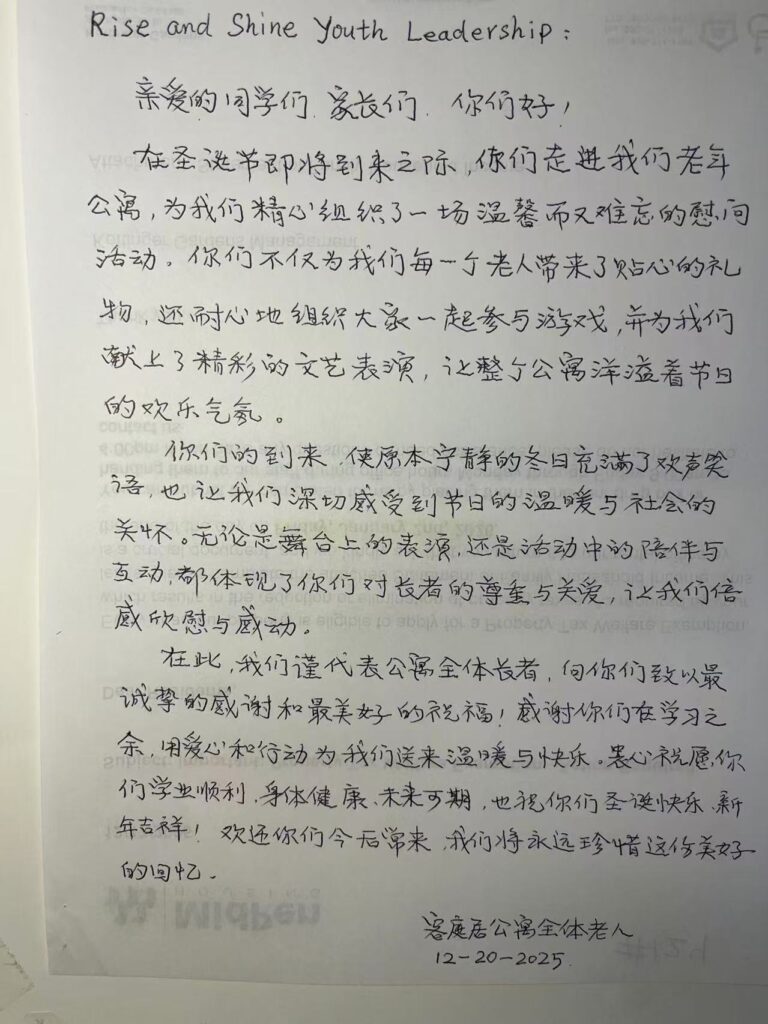 Rise and Shine Youth Leadership:
亲爱的同学们、家长们、你们好！
在圣诞节即将到来之际，你们走进我们老年
公寓，为我们精心组织了一场温馨而又难忘的慰问
活动。你们不仅为我们每一个老人带来了贴心的礼
物，还耐心地组织大家一起参与游戏，并为我们
献上了精彩的文艺表演，让整个公寓洋溢着节日
的欢乐气氛。
你们的到来，使原本宁静的冬日充满了欢声笑
语，也让我们深切感受到节日的温暖与社会的
关怀。无论是舞台上的表演，还是活动中的陪伴与
互动，都体现了你们对长者的尊重与关爱，让我们倍
感欣慰与感动。
在此，我们谨代表公寓全体长者，向你们致以最
诚挚的感谢和最美好的祝福！感谢你们在学习之
余，用爱心和行动为我们送来温暖与快乐。衷心祝愿你
们学业顺利、身体健康、未来可期，也祝你们圣诞快乐、新
年吉祥！欢迎你们今后常来，我们将永远珍惜这份美好
的回忆。
客庭居公寓全体老人
12-20-2025.
MidPen